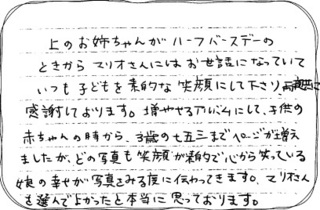 上のお姉ちゃんがハーフバースデーの
ときからマリオさんにはお世話になっていて
いつも子どもを素的な笑顔にして下さり
感謝しております。増やせるアルバムにして、子供の
赤ちゃんの時から、3歳の七五三までページが増え
ましたが、どの写真も笑顔が素的で心から笑っている
娘の幸せが写真をみる度に伝わってきます。マリオさん
を選んでよかったと本当に思っております。